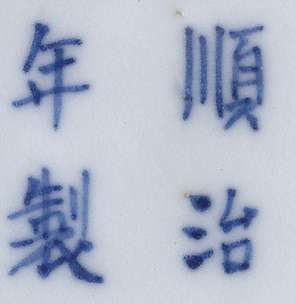 順治
年製